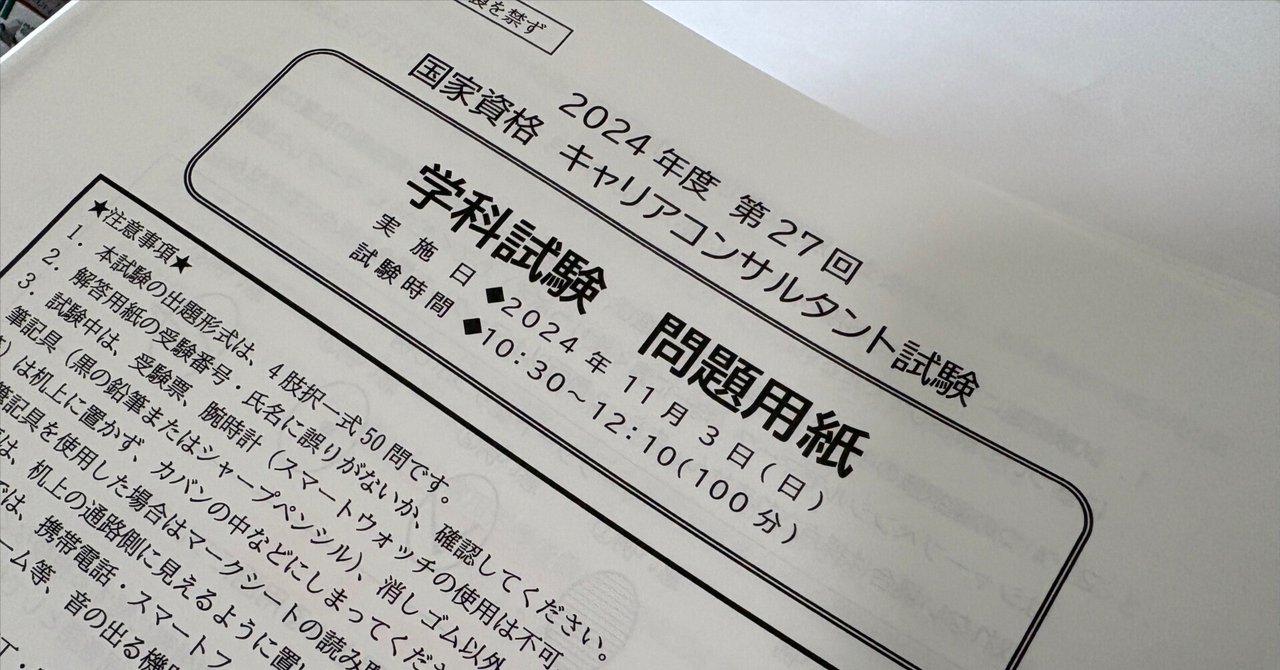 を禁ず
2024年度 第27回
国家資格 キャリアコンサルタント試験
学科試験 問題用紙
実施日◆2024年11月3日(日)
試験時間◆10:30~12:10(100分)
★注意事項★
1. 本試験の出題形式は、4肢択一式50問です。
2. 解答用紙の受験番号・氏名に誤りがないか、確認してください。
3. 試験中は、受験票、腕時計(スマートウォッチの使用は不可
筆記具(黒の鉛筆またはシャープペンシル)、消しゴム以外
)は机上に置かず、カバンの中などにしまってくだ
記具を使用した場合はマークシートの読み
は、机上の通路側に見えるように置
は、携帯電話・スマートフ
ーム等、音の出る機